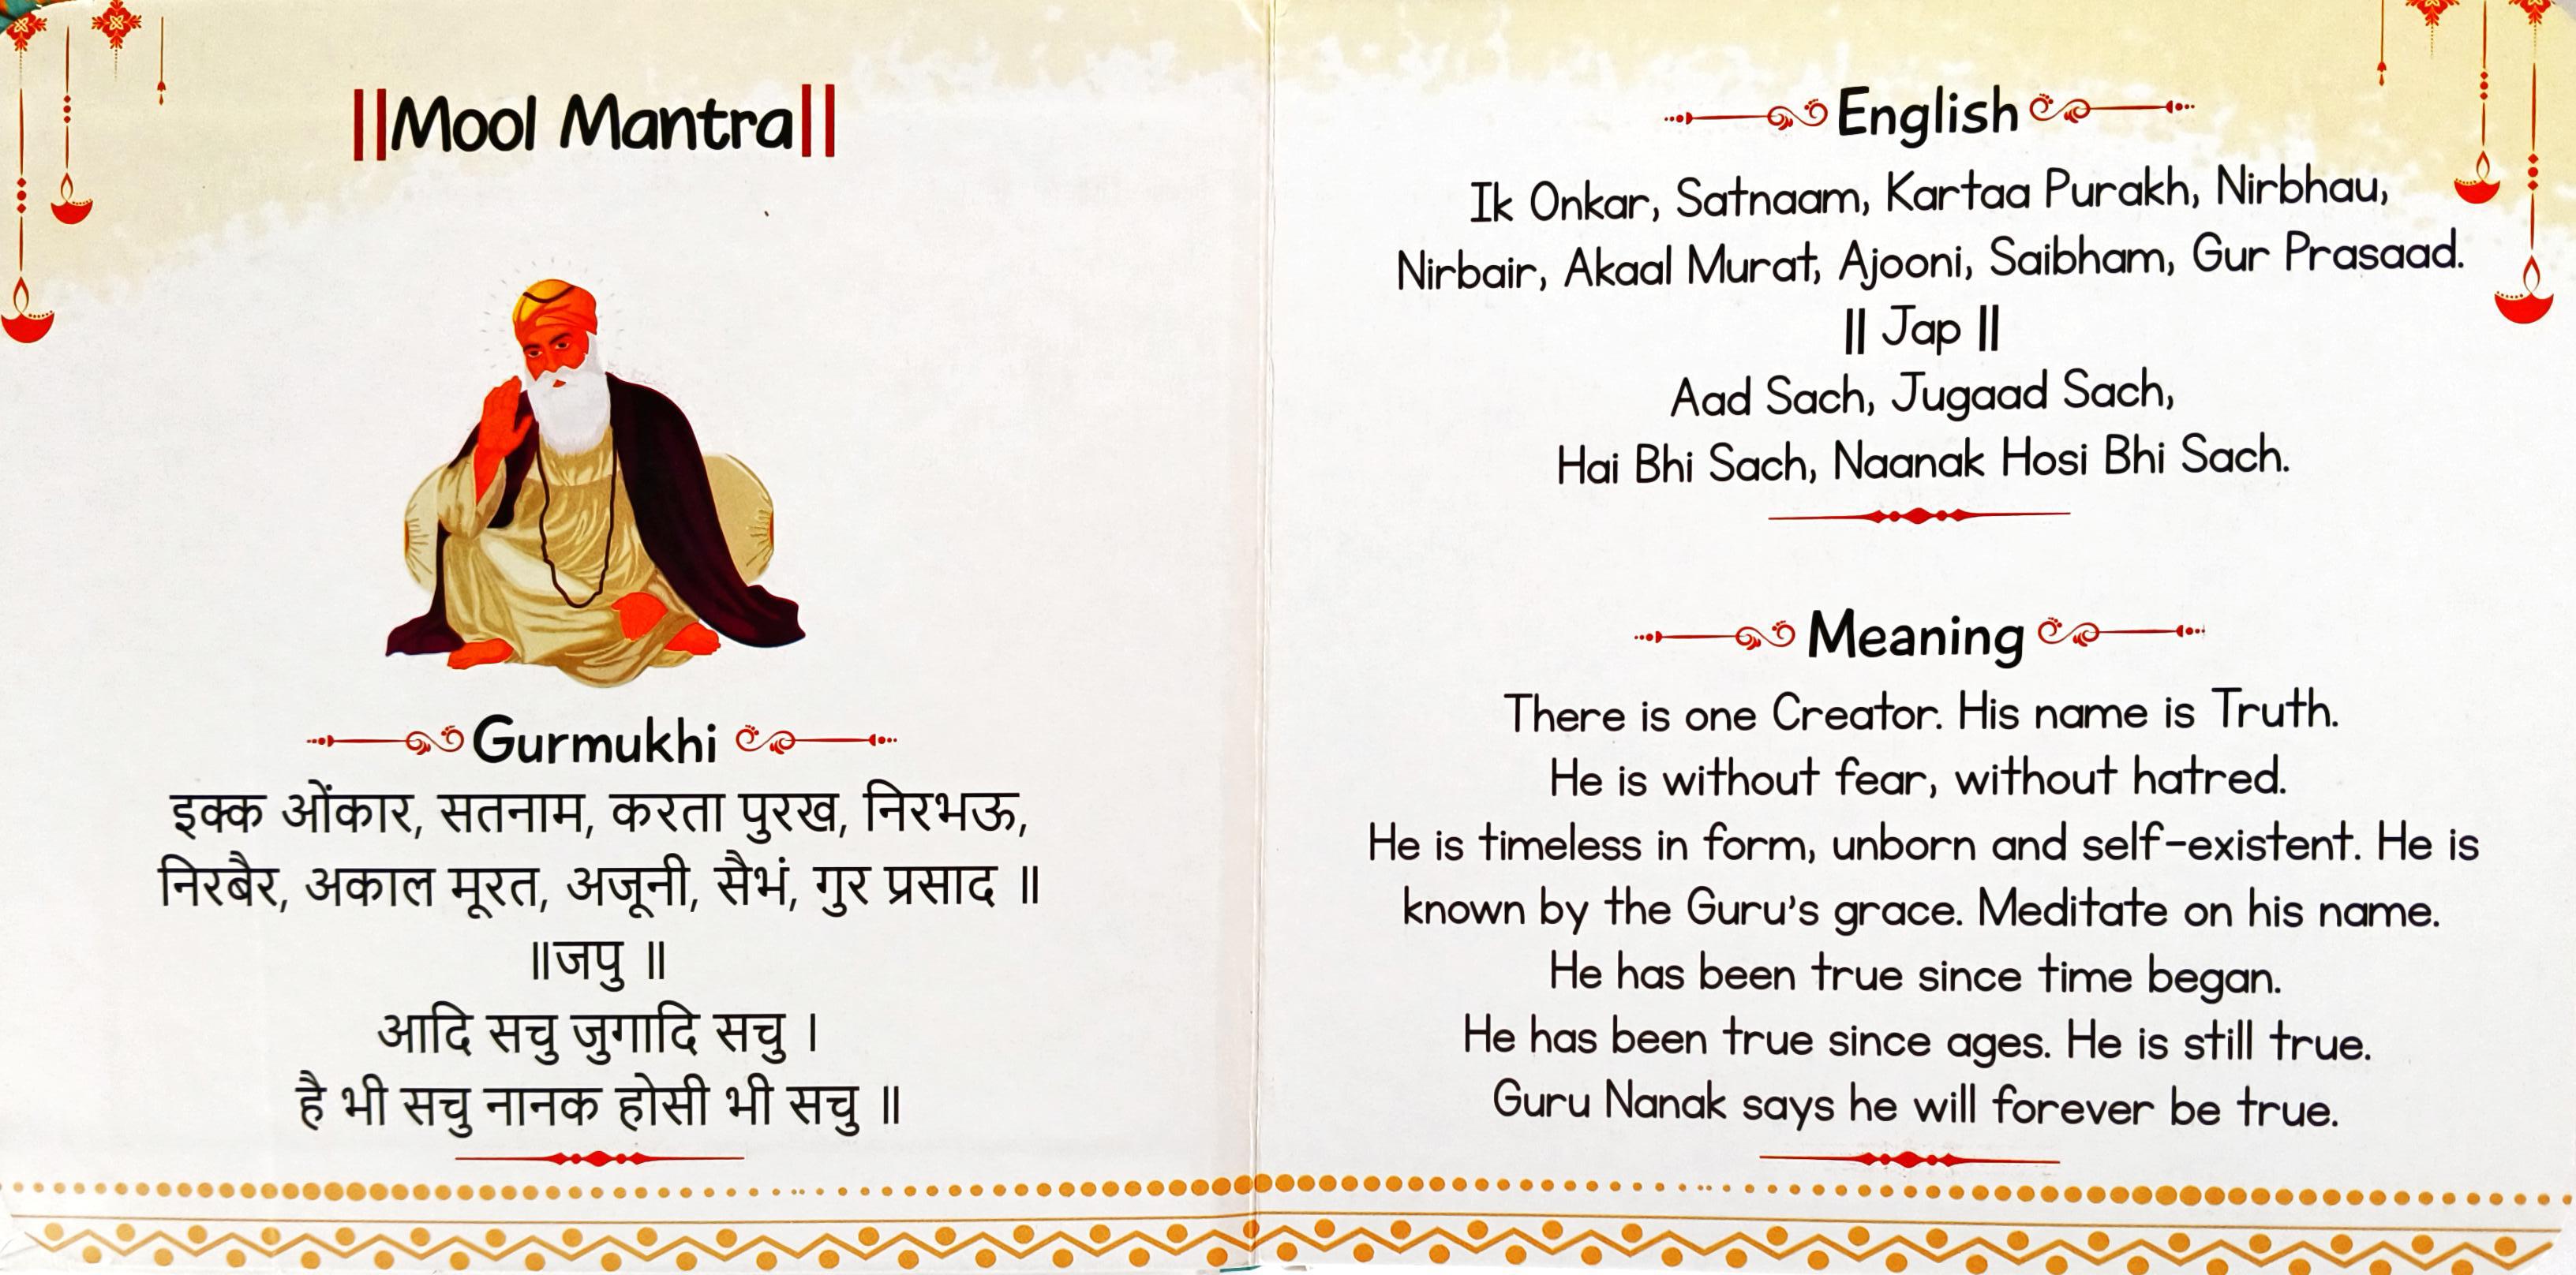 ||Mool Mantra||
Gurmukhi
इक्क ओंकार, सतनाम, करता पुरख, निरभऊ,
निरबैर, अकाल मूरत, अजूनी, सैभं, गुर प्रसाद ॥
॥जपु ॥
आदि सचु जुगादि सचु ।
है भी सचु नानक होसी भी सचु ॥
English
Ik Onkar, Satnaam, Kartaa Purakh, Nirbhau,
Nirbair, Akaal Murat, Ajooni, Saibham, Gur Prasaad.
|| Jap ||
Aad Sach, Jugaad Sach,
Hai Bhi Sach, Naanak Hosi Bhi Sach.
Meaning
There is one Creator. His name is Truth.
He is without fear, without hatred.
He is timeless in form, unborn and self-existent. He is
known by the Guru's grace. Meditate on his name.
He has been true since time began.
He has been true since ages. He is still true.
Guru Nanak says he will forever be true.